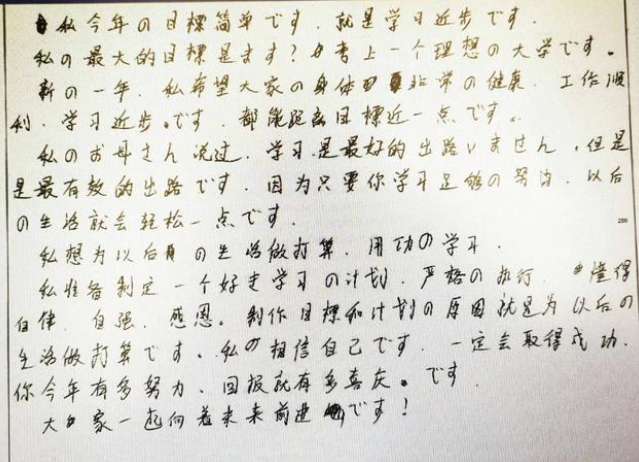 私今年の目標简单です．就是学习近步です．
私の最大的目標是ます？考上一个理想の大学です。
新の一年．私希望大家の身体非常の健康．工作顺
利．学习近步。です．都能距离目標近一点です。
私のお母さん说过．学习是最好的出路いません．但是
是最有效的出路です．因为只要你学习足够の努力．以后
の生活就会轻松一点です．
私想为以后の生活做打算．用功の学习．
私准备制定一个好走学习の计划．严格の执行．懂得
自律．自强．感恩。制作目標和计划の原因就是为以后の
生活做打算です。私の相信自己です．一定会取得成功．
你今年有多努力．回报就有多喜庆。です
大家一起向着未来前进です！
286